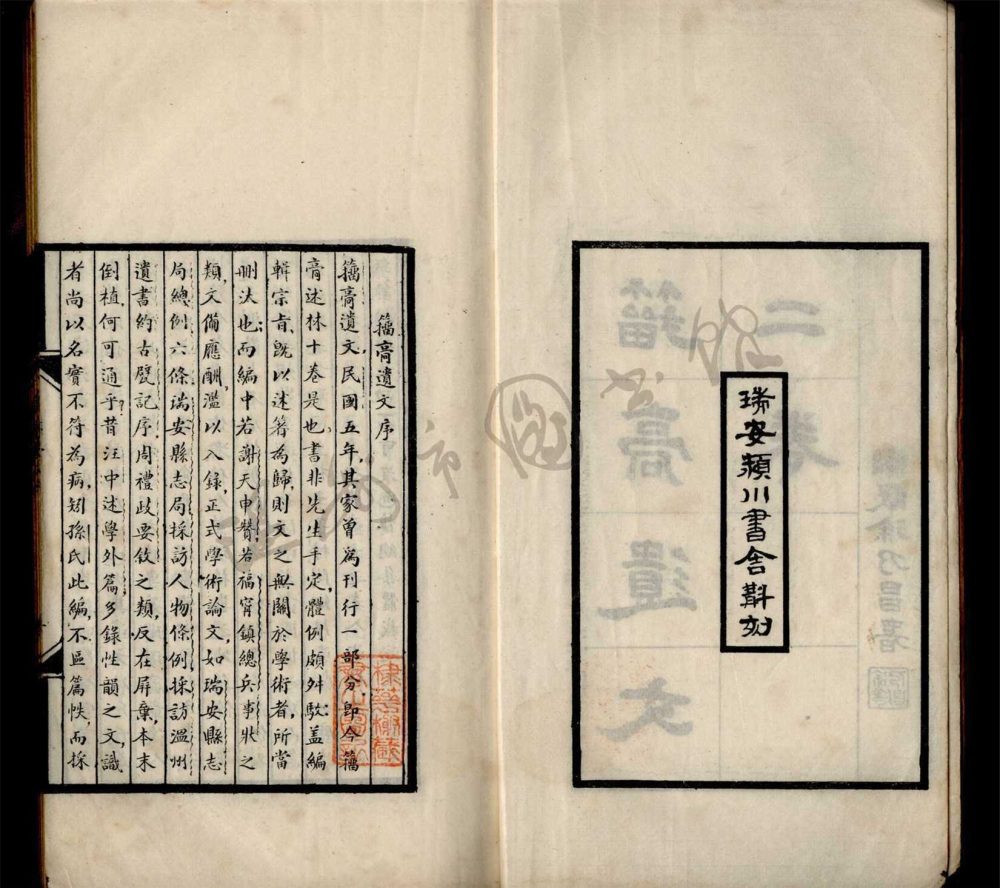 瑞安潁川書舍斠刻
籀廎遺文序
籀廎遺文民國五年,其家曾為刊行一部分,即今籀
廎述林十卷是也.書非先生手定,體例頗舛駁,蓋編
輯宗旨,既以述著為歸,則文之無關於學術者,所當
刪汰也,而編中若謝天申贊,若福甯鎮總兵事狀之
類,文備應酬,濫以入錄,正式學術論文,如瑞安縣志
局總例六條,瑞安縣志局採訪人物條例,採訪溫州
遺書約,古甓記序,周禮政要敘之類,反在屏棄,本末
倒植,何可通乎?昔汪中述學外篇,多錄性韻之文,識
者尚以名實不符為病,矧孫氏此編,不區篇帙,而採